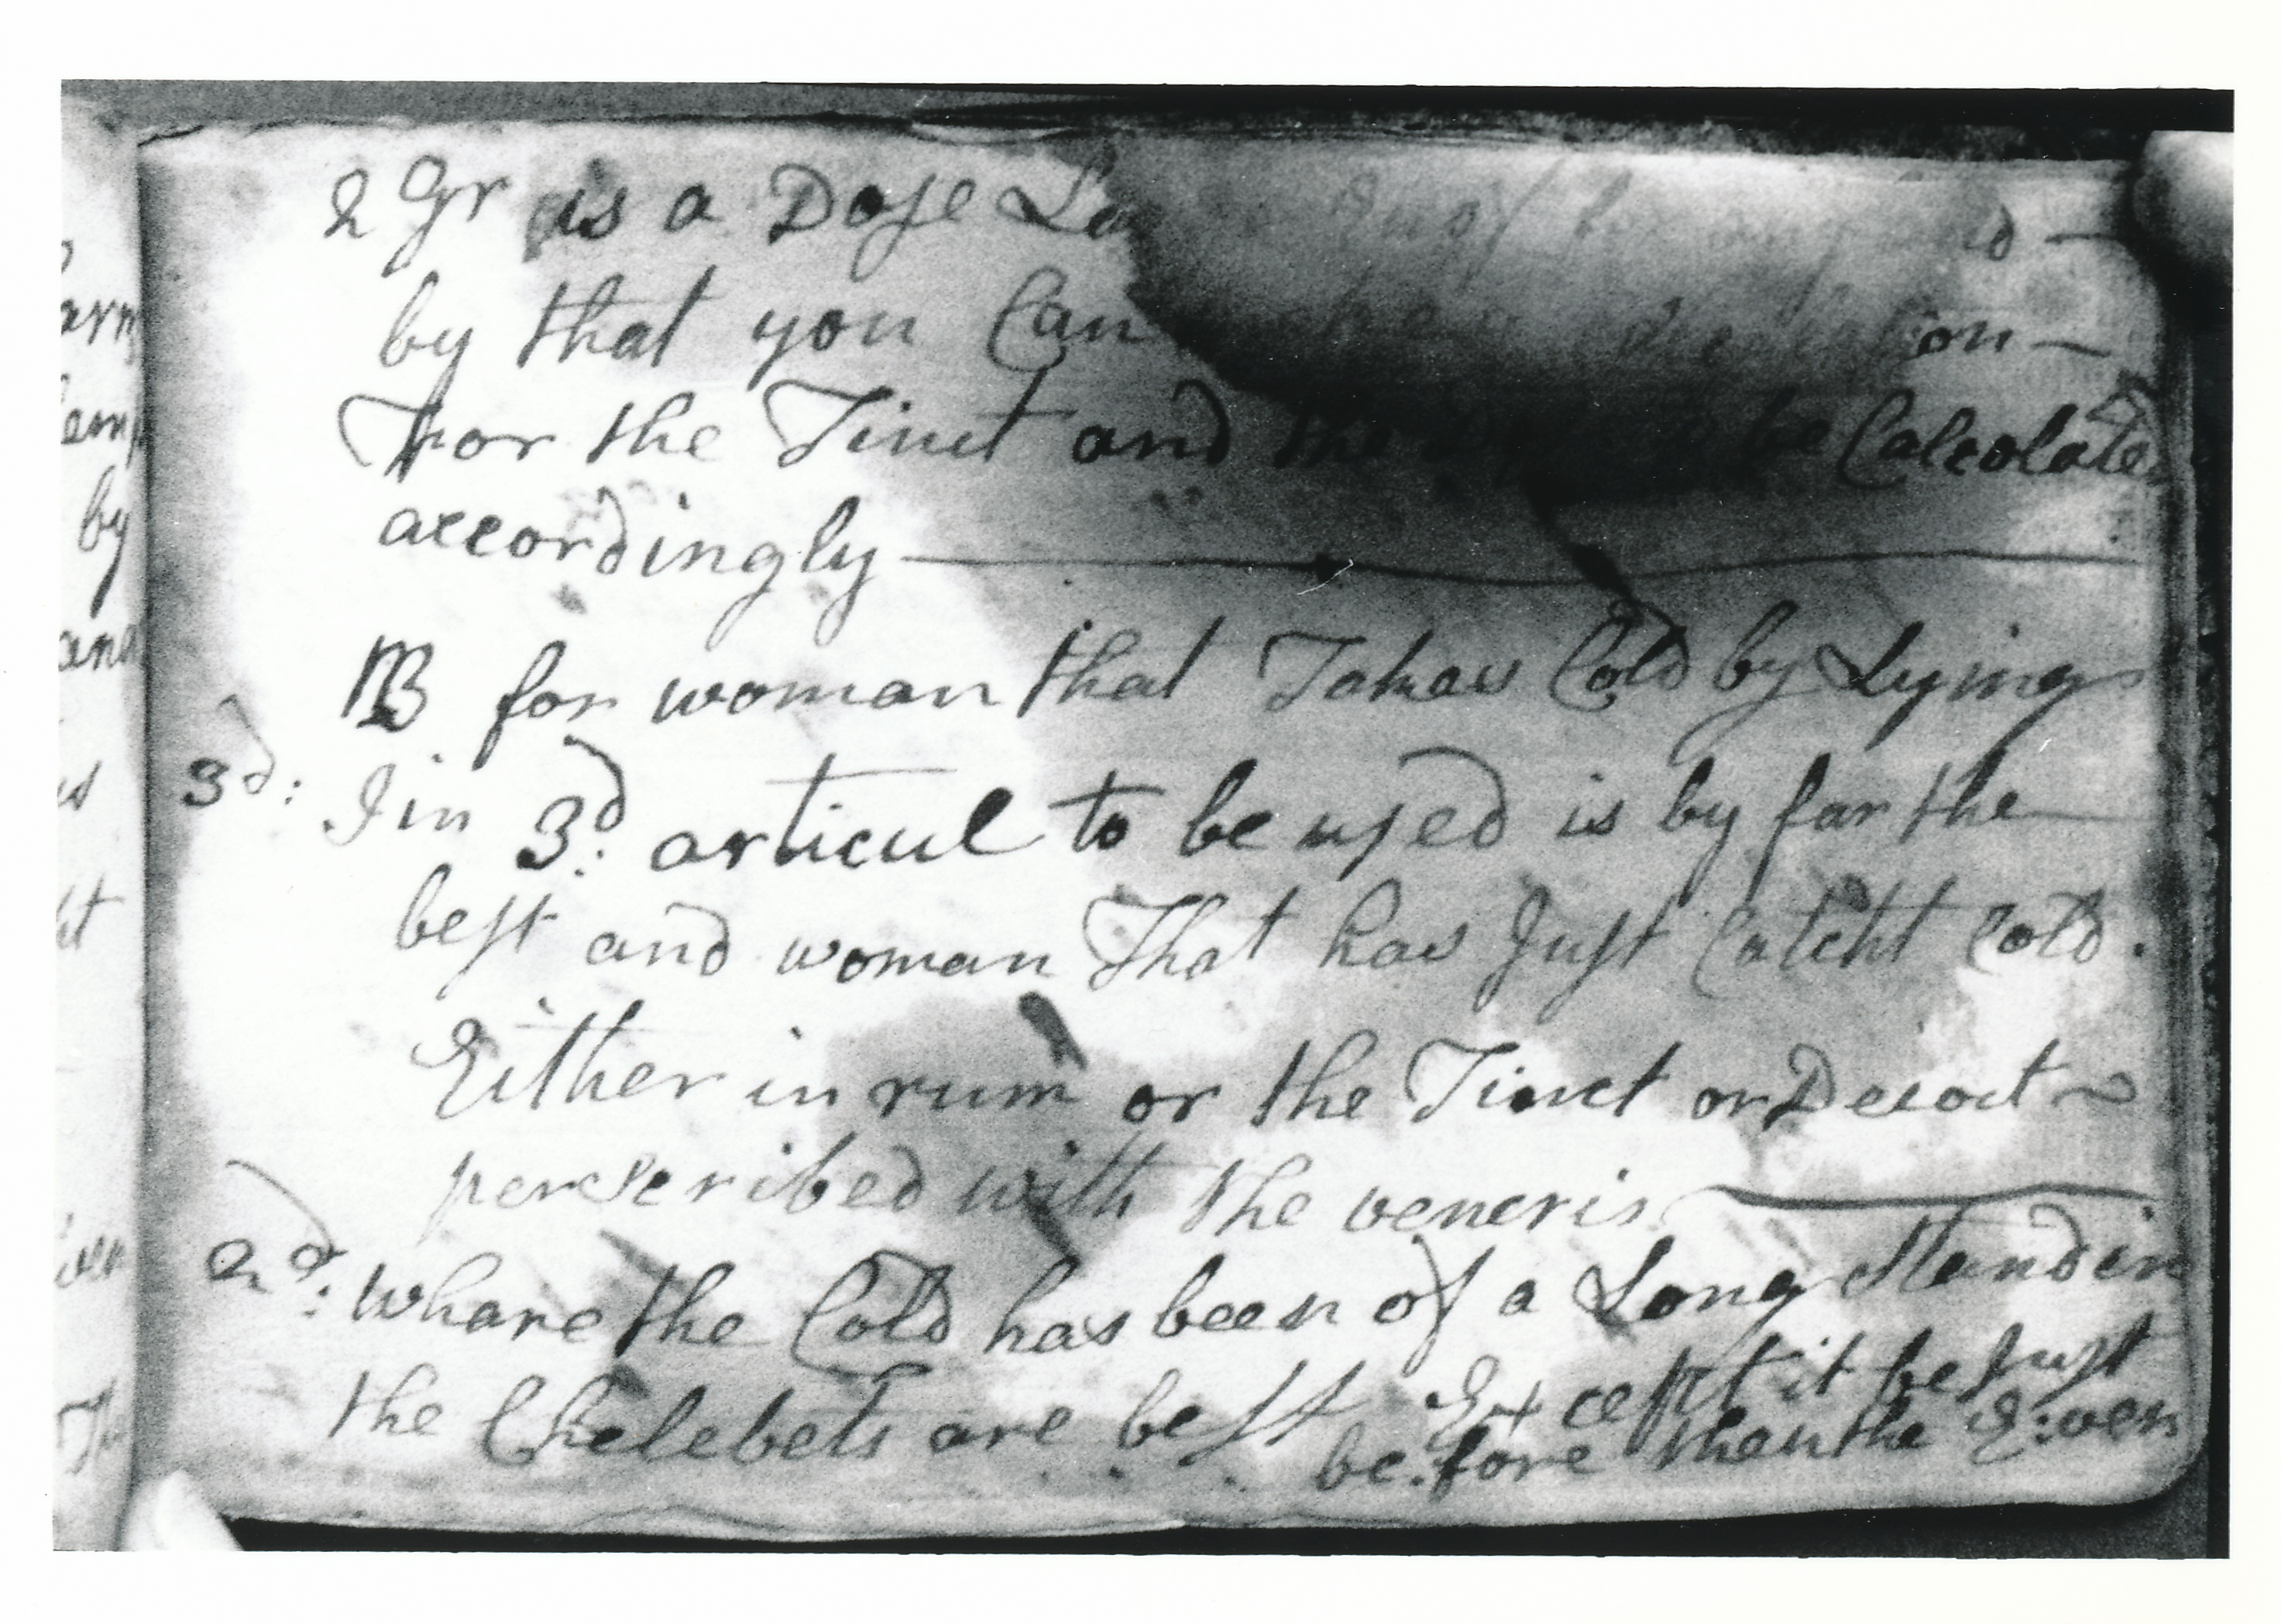 2 Gr is a Dose
by that you Can
For the Tinct and the be Calcolated
accordingly
NB for woman that Takes Cold by Lying
3d: I in 3d: articul to be used is by far the
best and woman That has Just Catcht Cold.
Either in rum or the Tinct or Decoct
perscribed with the veneris
2d: Whare the Cold has been of a Long Standin
the Chelebets are best Except it be Just
before then the E:ven